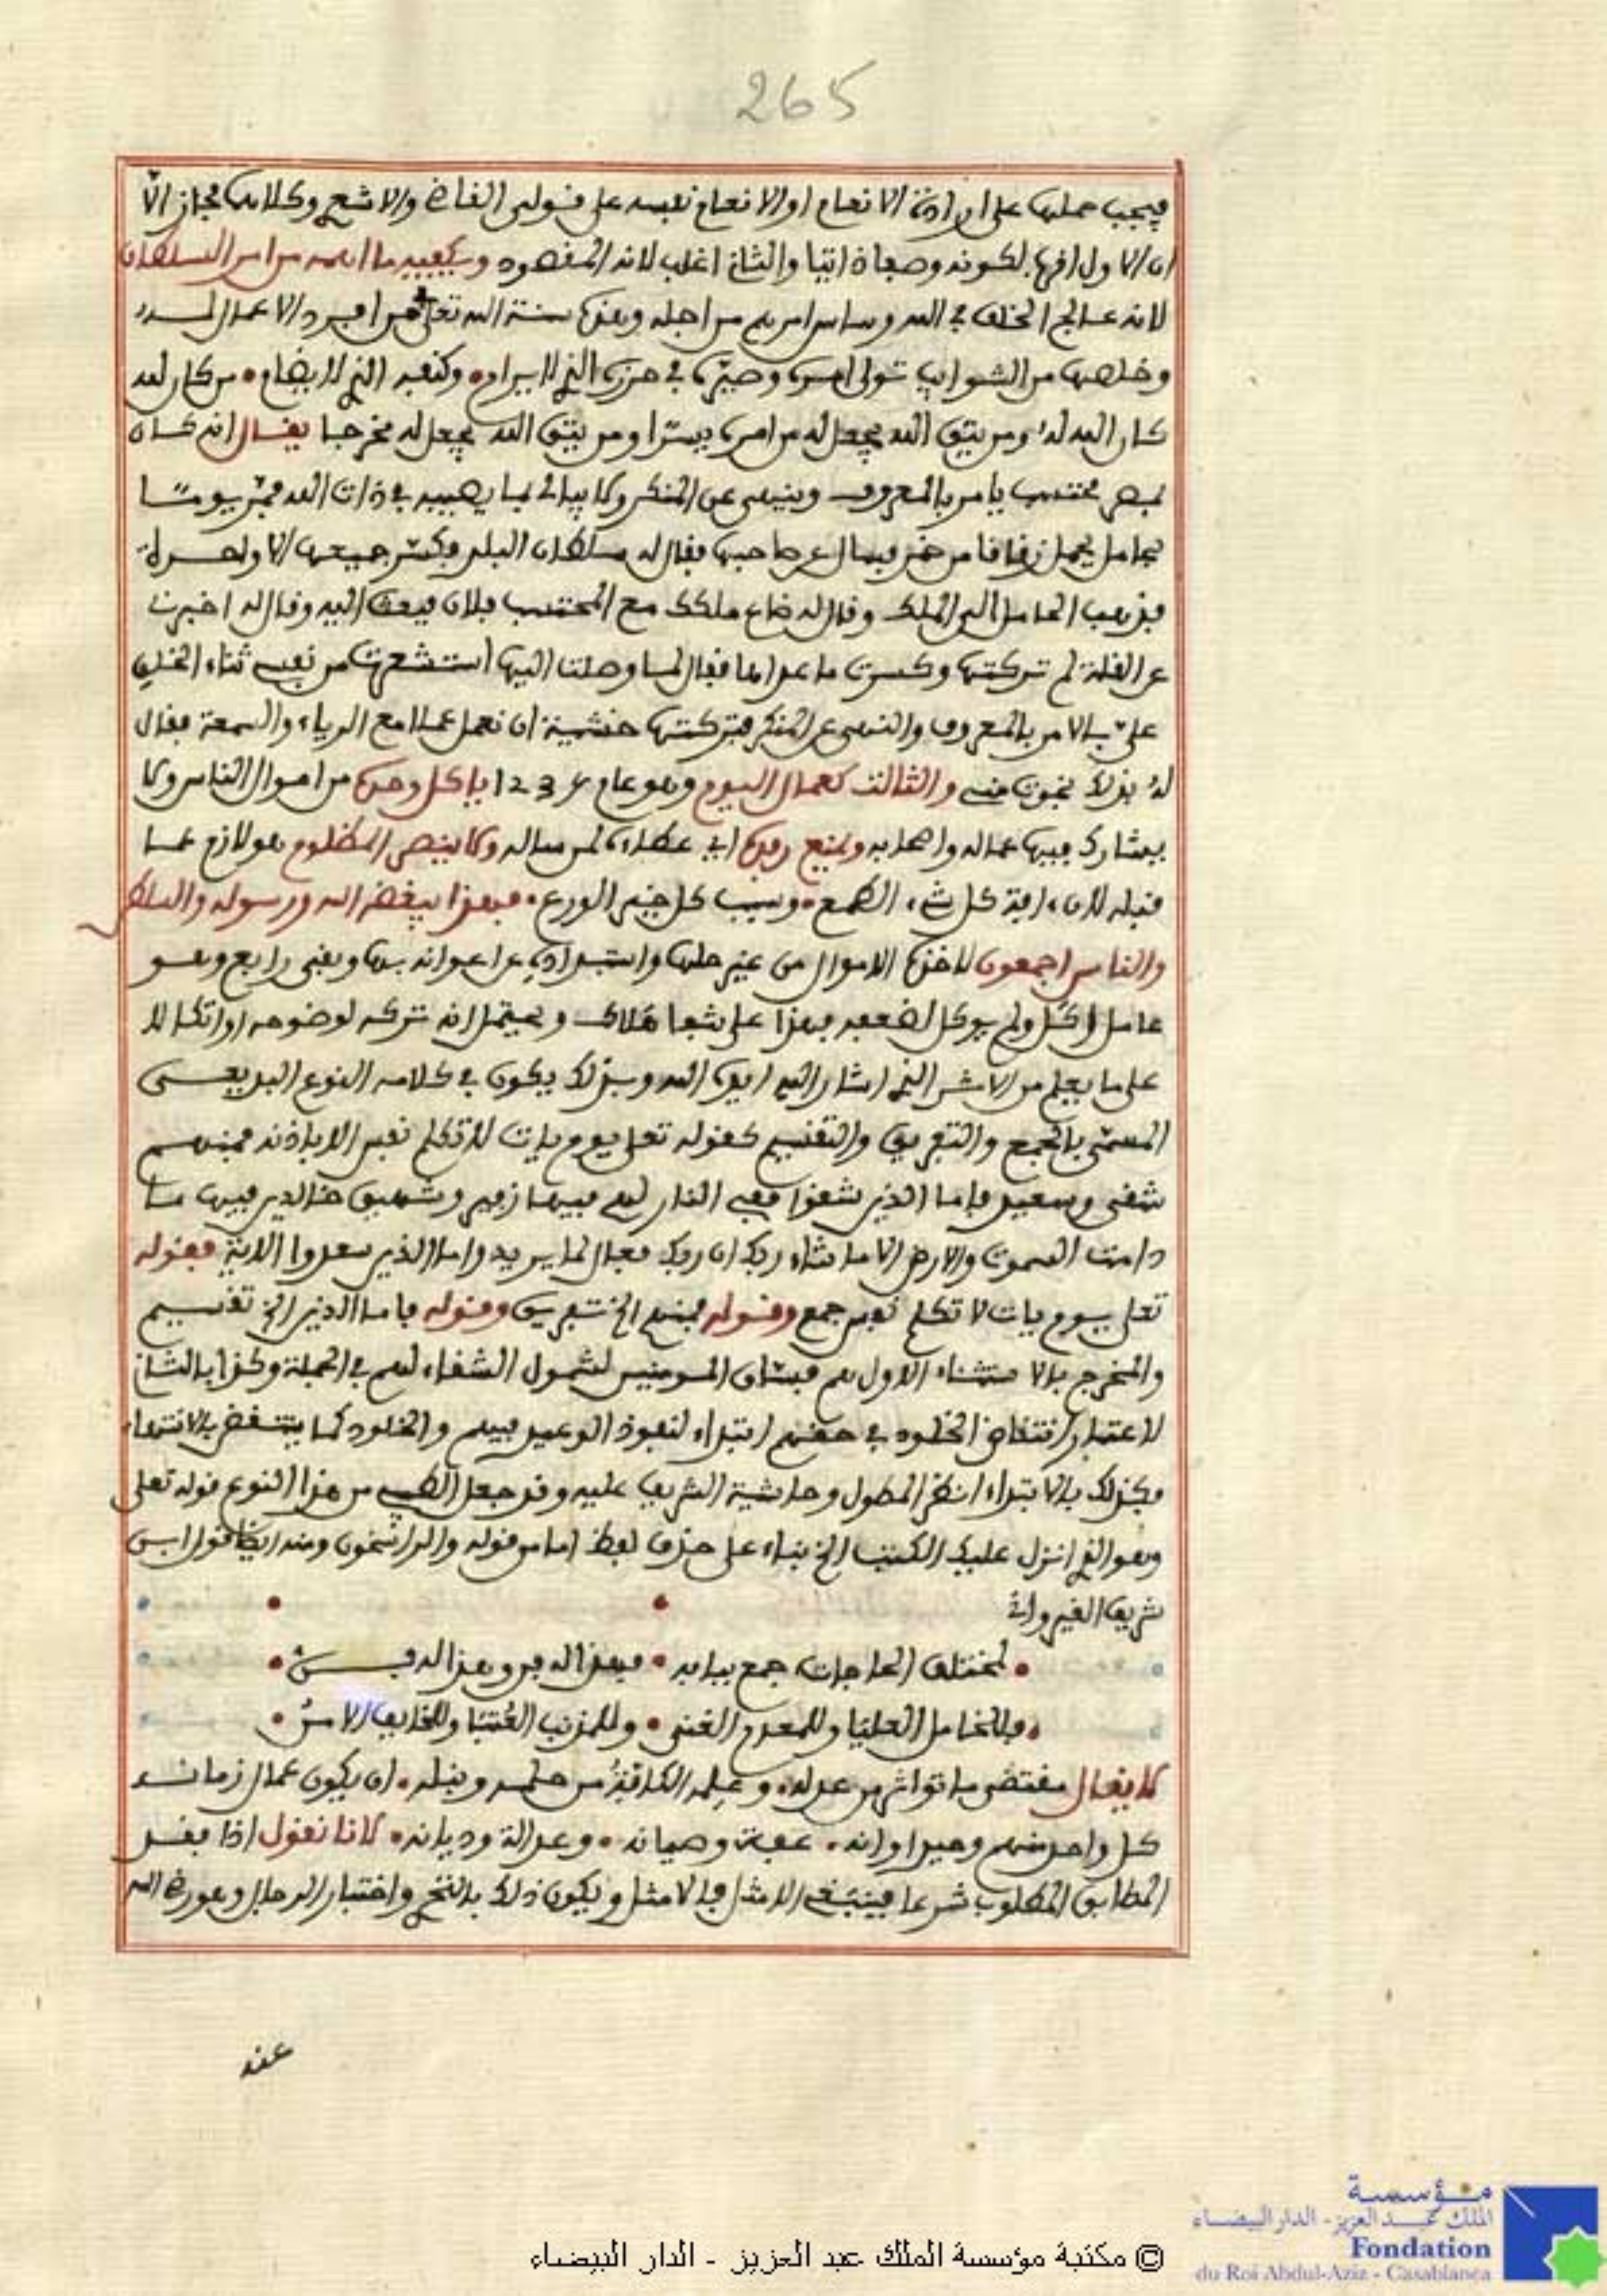 265
فيجب حملها على ارادة الانعام او الانعام نفسه على قولى القاضى والاشعرى وكلاهما مجاز الا
ان الاول اقرب لكونه وصفا ذاتيا والثانى اغلب لانه المقصود ويكفيه ما اهمه من امر السلطان
لانه عالج الخلق فى الله وساس امرهم من اجله وهذه سنة الله تعلى فمن افرد الاعمال لسيده
وخلصها من الشوايب تولى امره وصيره فى حرزه الذى لا يرام • وكنفه الذى لا يضام • من كان لله
كان الله له ومن يتق الله يجعل له من امره يسرا ومن يتق الله يجعل له مخرجا يقال انه كان
بمصر محتسب يامر بالمعروف وينهى عن المنكر ولا يبالى بما يصيبه فى ذات الله فمر يوما
بحامل يحمل زقاقا من خمر فسال عن صاحبها فقال له سلطان البلد فكسر جميعها الا واحدة
فذهب الحامل الى الملك وقال له ضاع ملكك مع المحتسب فلان فبعث اليه وقال له اخبرت
عن القلة لم تركتها وكسرت ما عداها فقال لما وصلت اليها استشعرت من نفسى ثناء الخلق
على بالامر بالمعروف والنهى عن المنكر فتركتها خشية ان نعمل عملا مع الرياء والسمعة فقال
له بذلك نجوت منى والثالث كعمال اليوم وهو عام 1234 ياكل وحده من اموال الناس ولا
يشارك فيها عماله واصحابه ويمنع رفده اى عطاءه لمن ساله ولا ينصر المظلوم هو لازم عما
قبله لان ءافة كل شىء الطمع • وسبب كل خير الورع • فهذا يبغضه الله ورسوله والسلطان
والناس اجمعون لاخذه الاموال من غير حلها واستبداده عن اعوانه بها وبقى رابع وهو
عامل اكل ولم يوكل لضعفه فهذا على شفا هلاك ويحتمل انه تركه لوضوحه او اتكالا
على ما يعلم من الاشر الذى اشار اليه ايده الله وبذلك يكون فى كلامه النوع البديعى
المسمى بالجمع والتفريق والتقسيم كقوله تعلى يوم يات لا تكلم نفس الا باذنه فمنهم
شقى وسعيد فاما الذين شقوا ففى النار لهم فيها زفير وشهيق خالدين فيها ما
دامت السموت والارض الا ما شاء ربك ان ربك فعال لما يريد واما الذين سعدوا الاية فقوله
تعلى يوم يات لا تكلم نفس جمع وقوله فمنهم الخ تفريق وقوله فاما الذين الخ تقسيم
والمخرج بالاستثناء الاول هم فساق المومنين لشمول الشقاء لهم فى الجملة وكذا بالثانى
لاعتبار انتفاض الخلود فى حقهم ابتداء لنفوذ الوعيد فيهم والخلود كما ينتقض بالانتهاء
فكذلك بالابتداء انظر المطول وحاشية الشريف عليه وقد جعل الطيبى من هذا النوع قوله تعلى
وهو الذى انزل عليك الكتب الخ بناء على حذف لفظ اما من قوله والراسخون ومنه ايضا قول ابن
شريف القيروانى
• لمختلف الحاجات جمع ببابه • فهذا له فن وهذا له فـــن •
• فللخامل العليا وللمعدم الغنى • وللمذنب العتبا وللخايف الامن •
لا يقال مقتضى ما تواتر من عدله • وعلمه الكافة من حلمه ونبله • ان يكون عمال زمانه
كل واحد منهم وحيد اوانه • عفة وصيانه • وعدالة وديانه • لانا نقول اذا فقد
المطابق المطلوب شرعا فينتقى الامثل فالامثل ويكون ذلك بالتحرى واختبار الرجال وعورض الله
عنه
مؤسسة
الملك عبد العزيز - الدار البيضاء
Fondation
du Roi Abdul-Aziz - Casablanca
© مكتبة مؤسسة الملك عبد العزيز - الدار البيضاء